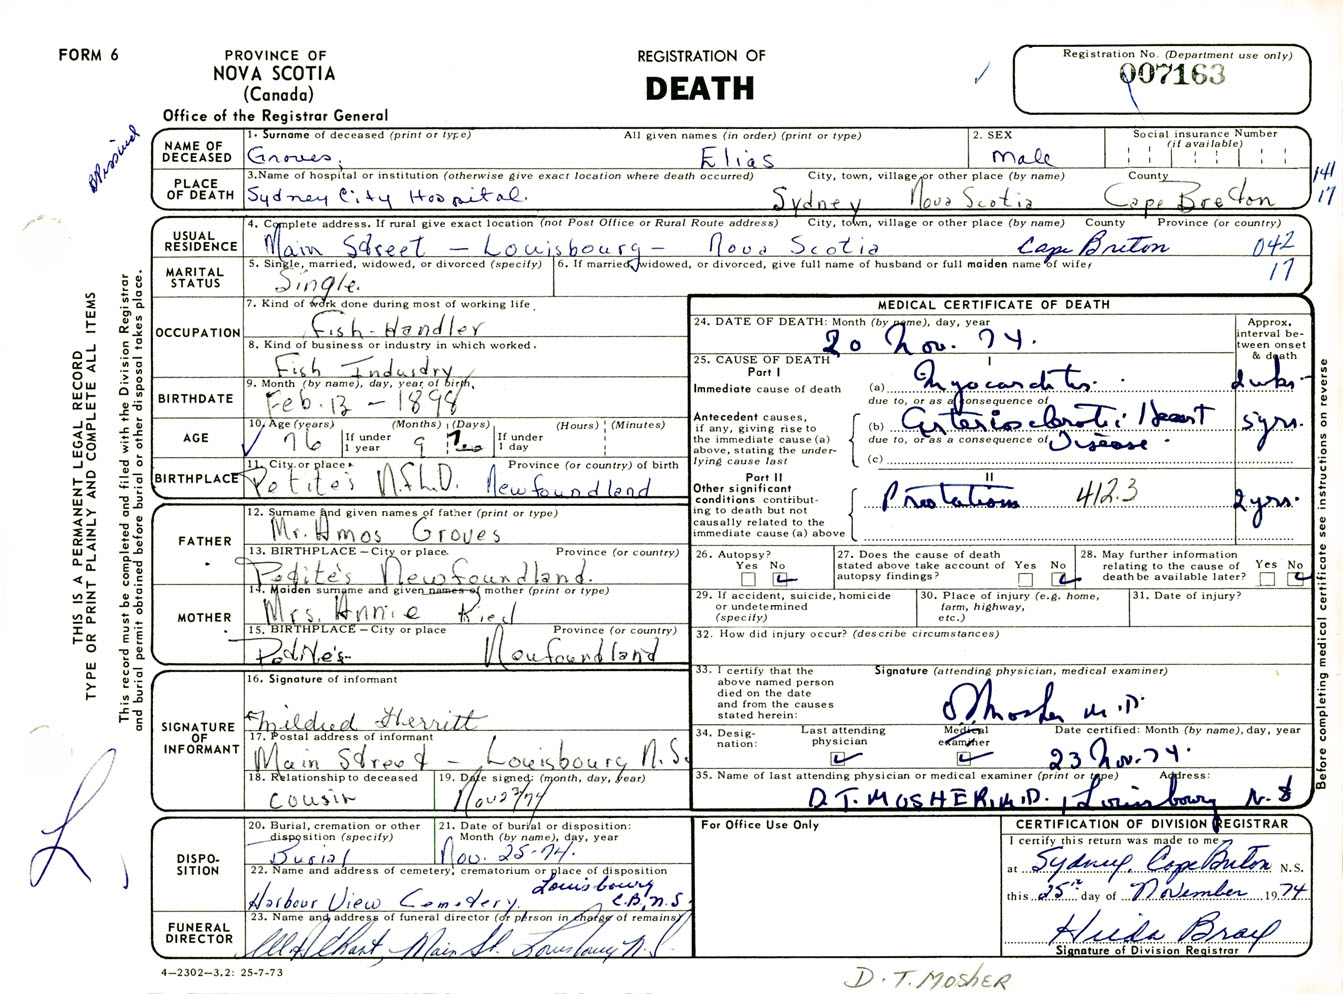 FORM 6
PROVINCE OF
NOVA SCOTIA
(Canada)
Office of the Registrar General
REGISTRATION OF
DEATH
Registration No. (Department use only)
007163
NAME OF DECEASED
1. Surname of deceased (print or type) All given names (in order) (print or type)
Groves, Elias
2. SEX
Male
Social insurance Number
(if available)
PLACE OF DEATH
3. Name of hospital or institution (otherwise give exact location where death occurred) City, town, village or other place (by name) County
Sydney City Hospital. Sydney Nova Scotia Cape Breton
141
17
USUAL RESIDENCE
4. Complete address. If rural give exact location (not Post Office or Rural Route address) City, town, village or other place (by name) County Province (or country)
Main Street - Louisbourg - Nova Scotia Cape Breton 042
17
MARITAL STATUS
5. Single, married, widowed, or divorced (specify)
Single.
6. If married, widowed, or divorced, give full name of husband or full maiden name of wife
OCCUPATION
7. Kind of work done during most of working life.
Fish-Handler
8. Kind of business or industry in which worked.
Fish Industry
BIRTHDATE
9. Month (by name), day, year of birth
Feb. 12 - 1898
AGE
10. Age (years) If under 1 year (Months) (Days) If under 1 day (Hours) (Minutes)
76 9
BIRTHPLACE
11. City or place Province (or country) of birth
Petite's N.F.L.D. Newfoundland
FATHER
12. Surname and given names of father (print or type)
Mr. Amos Groves
13. BIRTHPLACE - City or place. Province (or country)
Petite's Newfoundland.
MOTHER
14. Maiden surname and given names of mother (print or type)
Mrs. Annie Ried
15. BIRTHPLACE - City or place Province (or country)
Petite's Newfoundland
SIGNATURE OF INFORMANT
16. Signature of informant
Mildred Herritt
17. Postal address of informant
Main Street - Louisbourg N.S.
18. Relationship to deceased
cousin
19. Date signed: (month, day, year)
Nov 23/74
DISPOSITION
20. Burial, cremation or other disposition (specify)
Burial
21. Date of burial or disposition: Month (by name), day, year
Nov. 25-74.
22. Name and address of cemetery, crematorium or place of disposition
Harbour View Cemetery. Louisbourg C.B. N.S.
FUNERAL DIRECTOR
23. Name and address of funeral director (or person in charge of remains)
Main St. Louisbourg N.S.
4-2302-3.2: 25-7-73
MEDICAL CERTIFICATE OF DEATH
24. DATE OF DEATH: Month (by name), day, year
20 Nov. 74.
Approx. interval between onset & death
25. CAUSE OF DEATH
Part I
I
Immediate cause of death
(a) Myocarditis. 2 wks.
due to, or as a consequence of
Antecedent causes, if any, giving rise to the immediate cause (a) above, stating the underlying cause last
(b) Arteriosclerotic Heart Disease. 5 yrs.
due to, or as a consequence of
(c)
Part II
II
Other significant conditions contributing to death but not causally related to the immediate cause (a) above
412.3 2 yrs.
26. Autopsy?
Yes No
27. Does the cause of death stated above take account of autopsy findings?
Yes No
28. May further information relating to the cause of death be available later?
Yes No
29. If accident, suicide, homicide or undetermined (specify)
30. Place of injury (e.g. home, farm, highway, etc.)
31. Date of injury?
32. How did injury occur? (describe circumstances)
33. I certify that the above named person died on the date and from the causes stated herein:
Signature (attending physician, medical examiner)
Mosher M.D.
34. Designation:
Last attending physician
Medical examiner
Date certified: Month (by name), day, year
23 Nov. 74.
35. Name of last attending physician or medical examiner (print or type) Address:
D.T. MOSHER, M.D. Louisbourg N.S
For Office Use Only
CERTIFICATION OF DIVISION REGISTRAR
I certify this return was made to me
at Sydney, Cape Breton N.S.
this 25th day of November 1974
Hilda Bray
Signature of Division Registrar
D.T. MOSHER
THIS IS A PERMANENT LEGAL RECORD
TYPE OR PRINT PLAINLY AND COMPLETE ALL ITEMS
This record must be completed and filed with the Division Registrar
and burial permit obtained before burial or other disposal takes place.
Before completing medical certificate see instructions on reverse